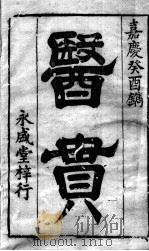 嘉慶癸酉鐫
醫貫
永盛堂梓行